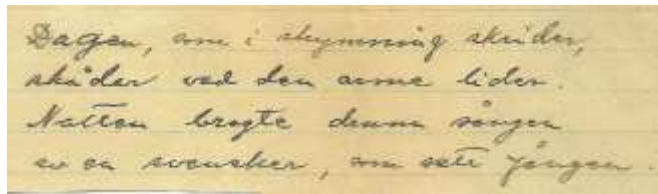 Dagen, som i skymning skrider,
skådar vad den arme lider.
Natten bragte denna sången
av en svensker, som satt fången.